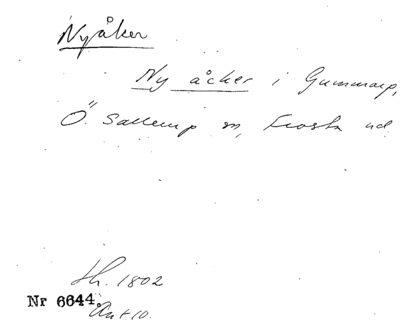 Nyåker
Ny åcker i Gummarp,
Ö. Sallerup sn, Frosta hd
Sh. 1802
Nr 6644.
Ant 10.